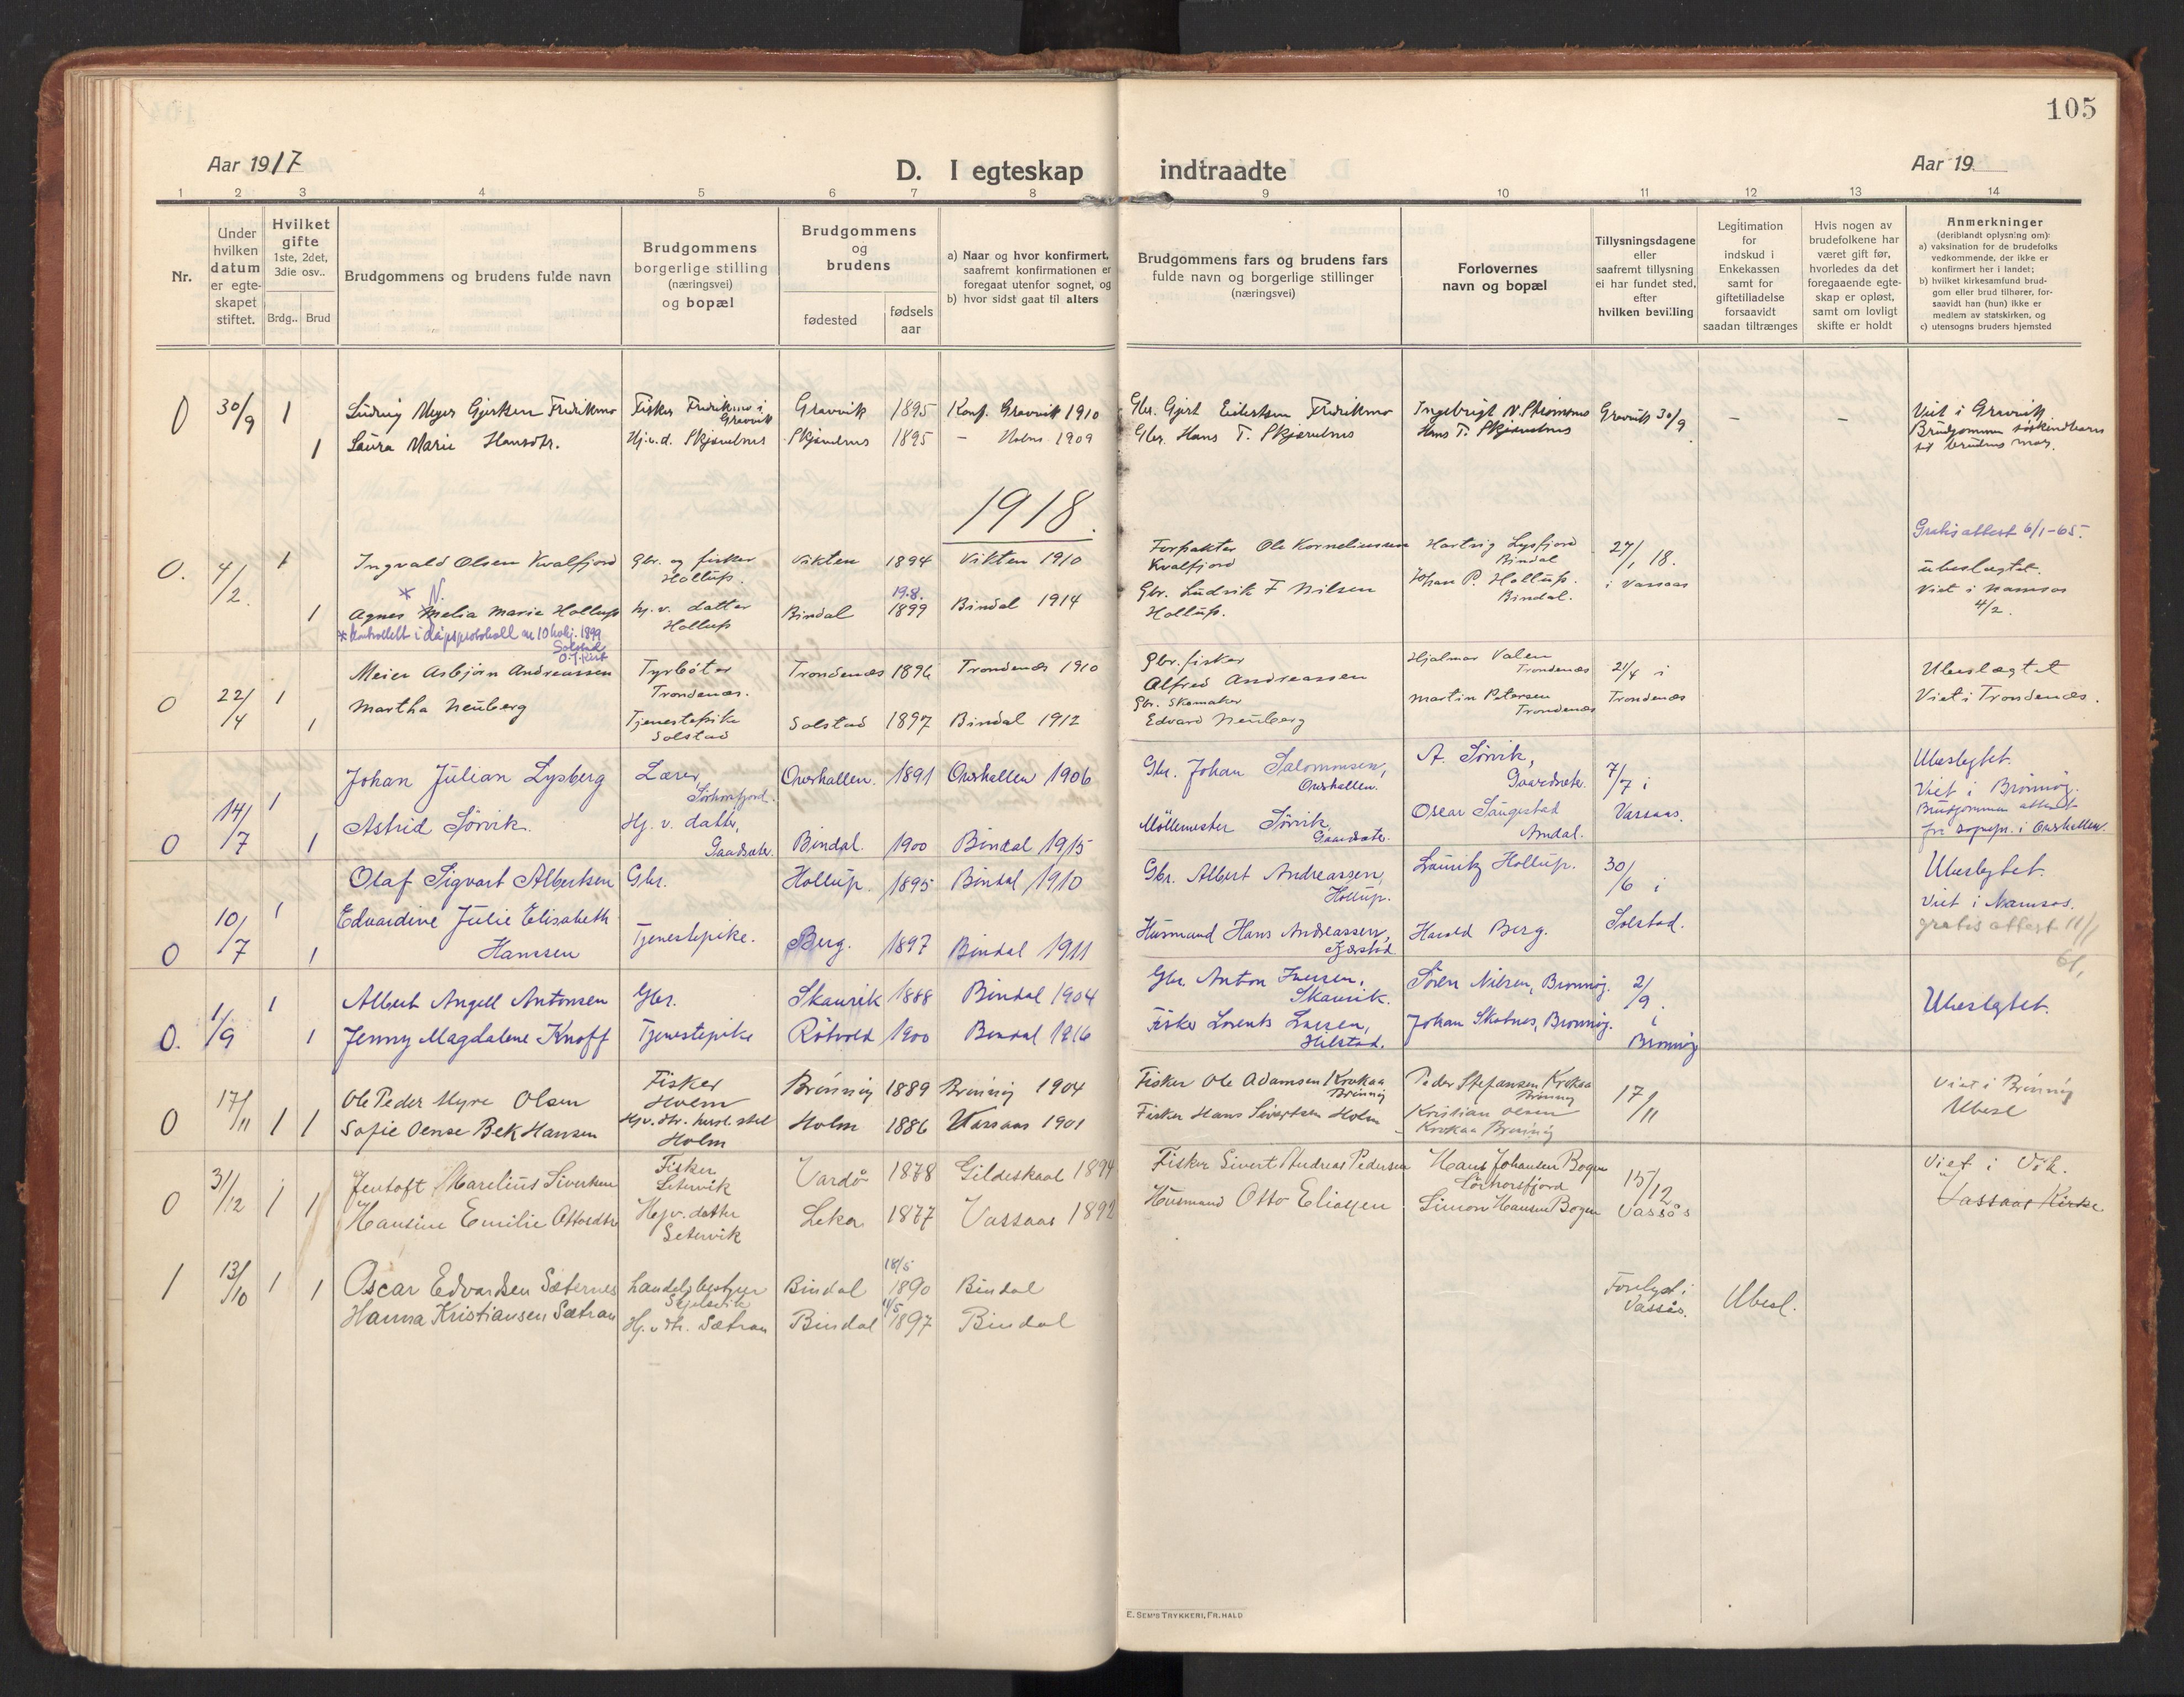 105
Aar 1917
D. I egteskap indtraadte
Aar 19
1 2 3 4 5 6 7 8 9 10 11 12 13 14
Nr.
Under hvilken datum er egte-skapet stiftet.
Hvilket gifte 1ste, 2det, 3die osv..
Brdg.. Brud
Brudgommens og brudens fulde navn
Brudgommens borgerlige stilling (næringsvei) og bopæl
Brudgommens og brudens
fødested
fødsels aar
a) Naar og hvor konfirmert, saafremt konfirmationen er foregaat utenfor sognet, og
b) hvor sidst gaat til alters
Brudgommens fars og brudens fars fulde navn og borgerlige stillinger (næringsvei)
Forlovernes navn og bopæl
Tillysningsdagene eller saafremt tillysning ei har fundet sted, efter hvilken bevilling
Legitimation for indskud i Enkekassen samt for giftetilladelse forsaavidt saadan tiltrænges
Hvis nogen av brudefolkene har været gift før, hvorledes da det foregaaende egte-skap er opløst, samt om lovligt skifte er holdt
Anmerkninger (deriblandt oplysning om):
a) vaksination for de brudefolks vedkommende, der ikke er konfirmert her i landet;
b) hvilket kirkesamfund brud-gom eller brud tilhører, for-saavidt han (hun) ikke er medlem av statskirken, og
c) utensogns bruders hjemsted
0 30/9 1 Ludvig Meyer Gjertsen Fredriksmo Fisker Fredriksmo i Gravvik Gravvik 1895 Konf. Gravvik 1910 Gbr. Gjert Eilertsen Fredriksmo Ingebrigt N. Strømsmo Gravvik 30/9 - - Viet i Gravvik
1 Laura Marie Hansdtr. Hj.v.d. Skjærelnes Skjærelnes 1895 - Holm 1909 Gbr. Hans T. Skjærelnes Hans T. Skjærelnes Brudgommen søskendbarn til brudens mor.
1918.
Gratis attest 6/1-65.
0. 4/2. 1 Ingvald Olsen Kvalfjord Gbr. og fisker Hollup. Vikten 1894 Vikten 1910 Forpakter Ole Korneliussen Kvalfjord Hartvig Lysfjord Bindal 27/1 18. i Vassaas ubeslægtet.
* N.
1 Agnes Melia Marie Hollup hj. v. datter Hollup Bindal 19.8. 1899 Bindal 1914 Gbr. Ludvik F Nilsen Hollup. Johan P. Hollup. Bindal. Viet i Namsos 4/2.
* kontrollert i dåpsprotokoll nr 10 1899
Solstad
0 22/4 1 Meier Asbjørn Andreassen Tyrbøter Trondenæs. Trondenæs 1896 Trondenæs 1910 Gbr. fisker Alfred Andreassen Hjalmar Valen Trondenæs 21/4 i Trondenæs Ubeslægtet
1 Martha Neuberg Tjenestepike Solstad Solstad 1897 Bindal 1912 Gbr. Skomaker Edvard Neuberg Martin Petersen Trondenæs Viet i Trondenæs.
0 14/7 1 Johan Julian Lysberg Lærer, Sørhorsfjord. Overhallen. 1891 Overhallen 1906 Gbr. Johan Salomonsen, Overhallen. A. Sørvik, Gaardsæter. 7/7 i Vassaas. Ubeslegtet.
1 Astrid Sørvik. Hj. v. datter, Gaardsæter. Bindal. 1900 Bindal 1915 Møllemester Sørvik, Gaardsæter. Oscar Saugestad Arndal. Viet i Brønnøy. Brudgommen attest fra sognepr. i Overhallen.
0 10/7 1 Olaf Sigvart Albertsen Gbr. Hollup. 1895 Bindal 1910 Gbr. Albert Andreassen, Hollup. Lauritz Hollup. 30/6 i Solstad. Ubeslegtet.
1 Edvardine Julie Elisabeth Hanssen Tjenestepike. Berg. 1897 Bindal 1911 Husmand Hans Andreassen, Kjærstad Harald Berg. Viet i Namsos. gratis attest 11/1 61,
0. 1/9 1 Albert Angell Antonsen Gbr. Skaurik 1888 Bindal 1904 Gbr. Anton Iversen, Skaurik. Søren Nilsen, Brønnøy. 2/9. i Brønnøy Ubeslegtet.
1 Jenny Magdalene Knoff Tjenestepike Røtvold 1900 Bindal 1916 Fisker Lorents Larsen, Helstad. Johan Skotnes, Brønnøy.
0 17/11 1 1 Ole Peder Myre Olsen Fisker Holm Brønnøy 1889 Brønnøy 1904 Fisker Ole Adamsen Krokaa Brønnøy Peder Stefansen Krokaa Brønnøy 17/11 Viet i Brønnøy
Sofie Oense Bek Hansen Hj.v.dtr. husl. stel Holm Holm 1886 Vassaas 1901 Fisker Hans Sivertsen Holm Kristian Olsen Krokaa Brønnøy Ubesl
0 31/12 1 1 Jentoft Marelius Sivertsen Fisker Setervik Vardø 1878 Gildeskaal 1894 Fisker Sivert Andreas Pedersen Hans Johansen Bogen Sørhorsfjord 15/12 Vassås Viet i Vik.
Hansine Emilie Ottosdtr Hj.v. datter Setervik Leka 1877 Vassaas 1892 Husmand Otto Eliassen Simon Hansen Bogen Vassaas Kirke
1 13/10 1 1 Oscar Edvardsen Sæternes Handelsbestyrer Bindal 18/5 1890 Bindal Forelyst i Vassås. Ubesl.
Hanna Kristiansen Sætran Hj.v.dtr. Sætran Bindal 11/5 1897 Bindal
E. SEM'S TRYKKERI, FR.HALD